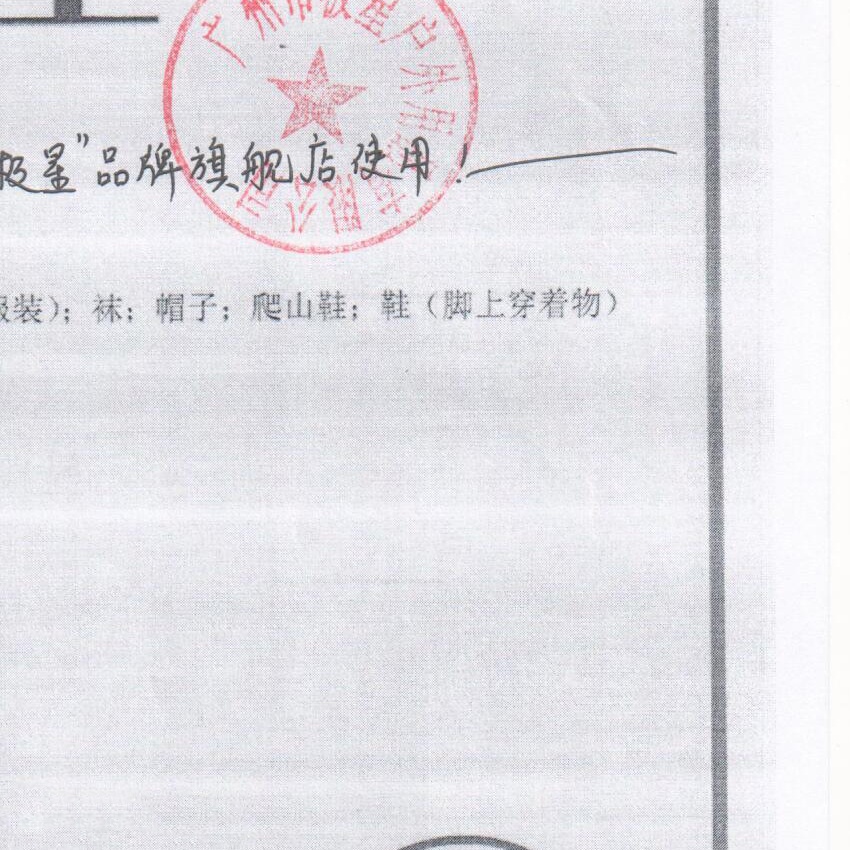 广州市极星户外用品有限公司
极星”品牌旗舰店使用！
服装）；袜；帽子；爬山鞋；鞋（脚上穿着物）